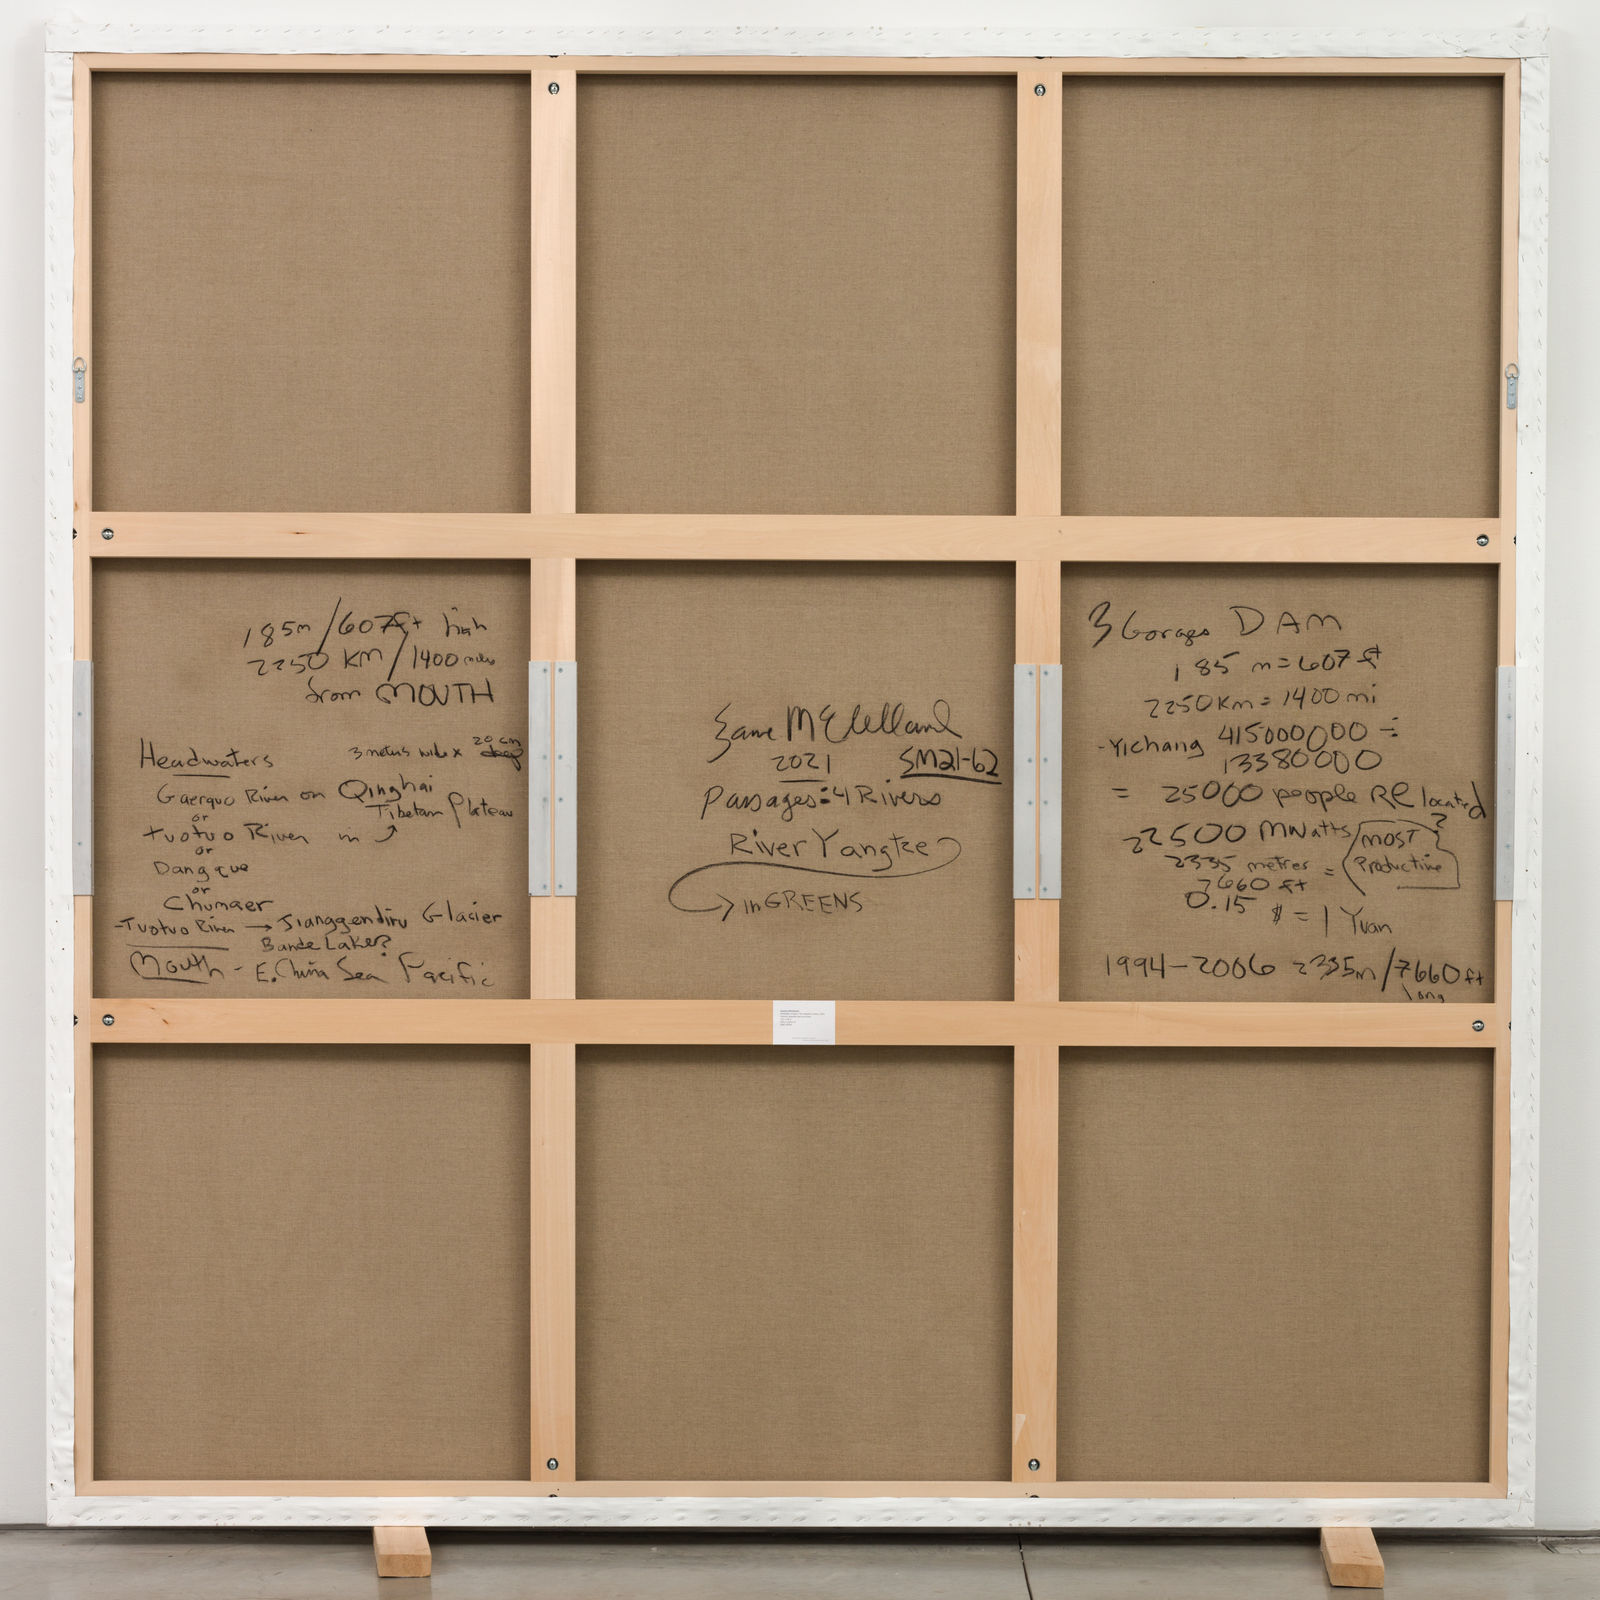 185m/607ft high
2250 KM/1400 miles
from MOUTH
Headwaters 3 meters wide x 20 cm deep
Gaerquo River on Qinghai
Tibetan Plateau
or
tuotuo River in
or
Dangque
or
Chumaer
-Tuotuo River → Jianggendiru Glasier
Bande Lake?
Mouth - E. China Sea Pacific
Suzanne McClelland
2021 SM21-62
Passages: 4 Rivers
River Yangtze
→ in GREENS
3 Gorges DAM
185 m=607 ft
2250 Km= 1400 mi
-Yichang 415000000 ÷
13380000
= 25000 people RElocated
?
22500 MWatts/MOST
2335 metres = Productive
7660 ft
0.15 $ = 1 Yuan
1994-2006 2335m/7660 ft
long